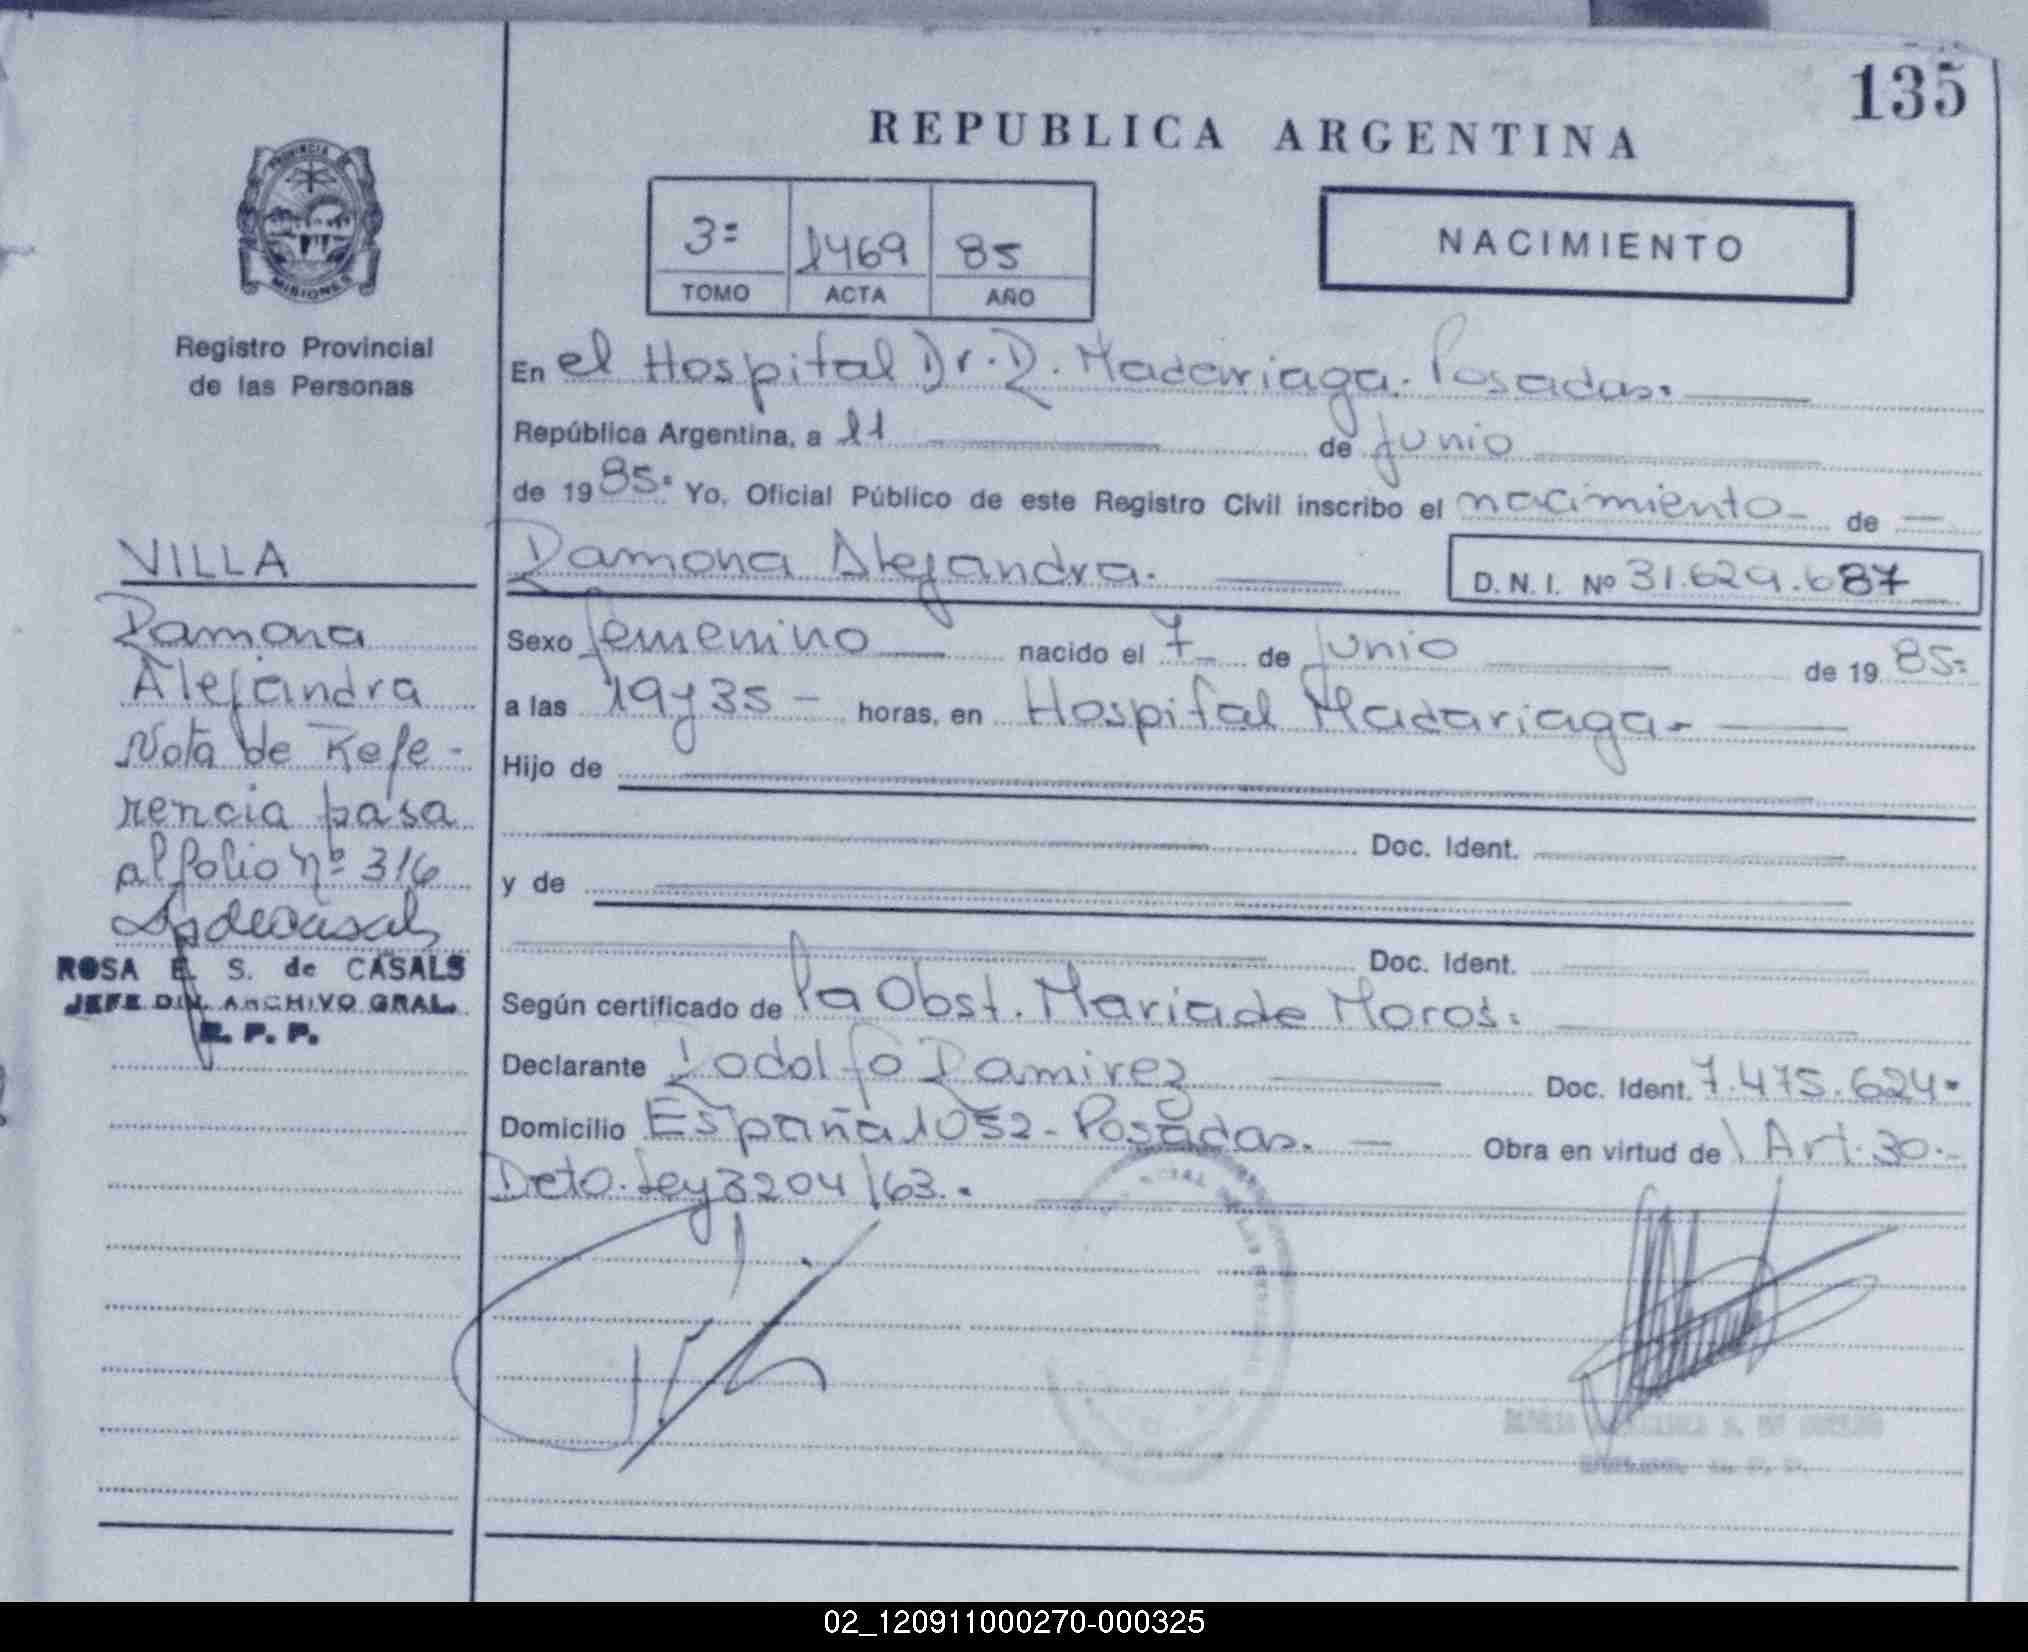 135
REPUBLICA ARGENTINA
PROVINCIA DE
MISIONES
Registro Provincial
de las Personas
3º 1469 85
TOMO ACTA AÑO
NACIMIENTO
En el Hospital Dr. R. Madariaga. Posadas.
República Argentina, a 11 de junio
de 1985. Yo, Oficial Público de este Registro Civil inscribo el nacimiento de
Ramona Alejandra.
D. N. I. Nº 31.629.687
Sexo femenino nacido el 7 de junio de 1985.
a las 19 y 35 horas, en Hospital Madariaga
Hijo de
Doc. Ident.
y de
Doc. Ident.
Según certificado de la Obst. Maria de Moros.
Declarante Rodolfo Ramirez Doc. Ident. 7.475.624.
Domicilio España 1052 - Posadas. Obra en virtud de Art. 30.
Dcto. Ley 8204/63.
VILLA
Ramona
Alejandra
Nota de Refe-
rencia pasa
al folio nº 316
ROSA E. S. de CASALS
JEFE DIV. ARCHIVO GRAL.
R. P. P.
02_120911000270-000325